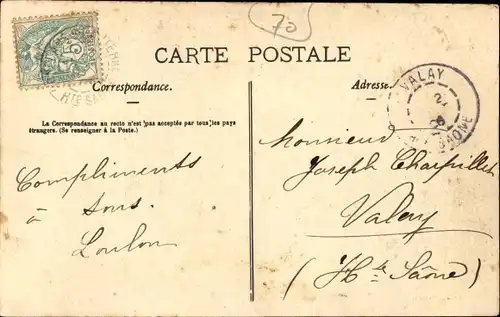 70
CARTE POSTALE
Correspondance.
Adresse.
VALAY
La Correspondance au recto n'est pas acceptée par tous les pays
étrangers. (Se renseigner à la Poste.)
Monsieur
Joseph Charpillet
Valay
(Hte Saône)
Compliments
à tous.
Loulou